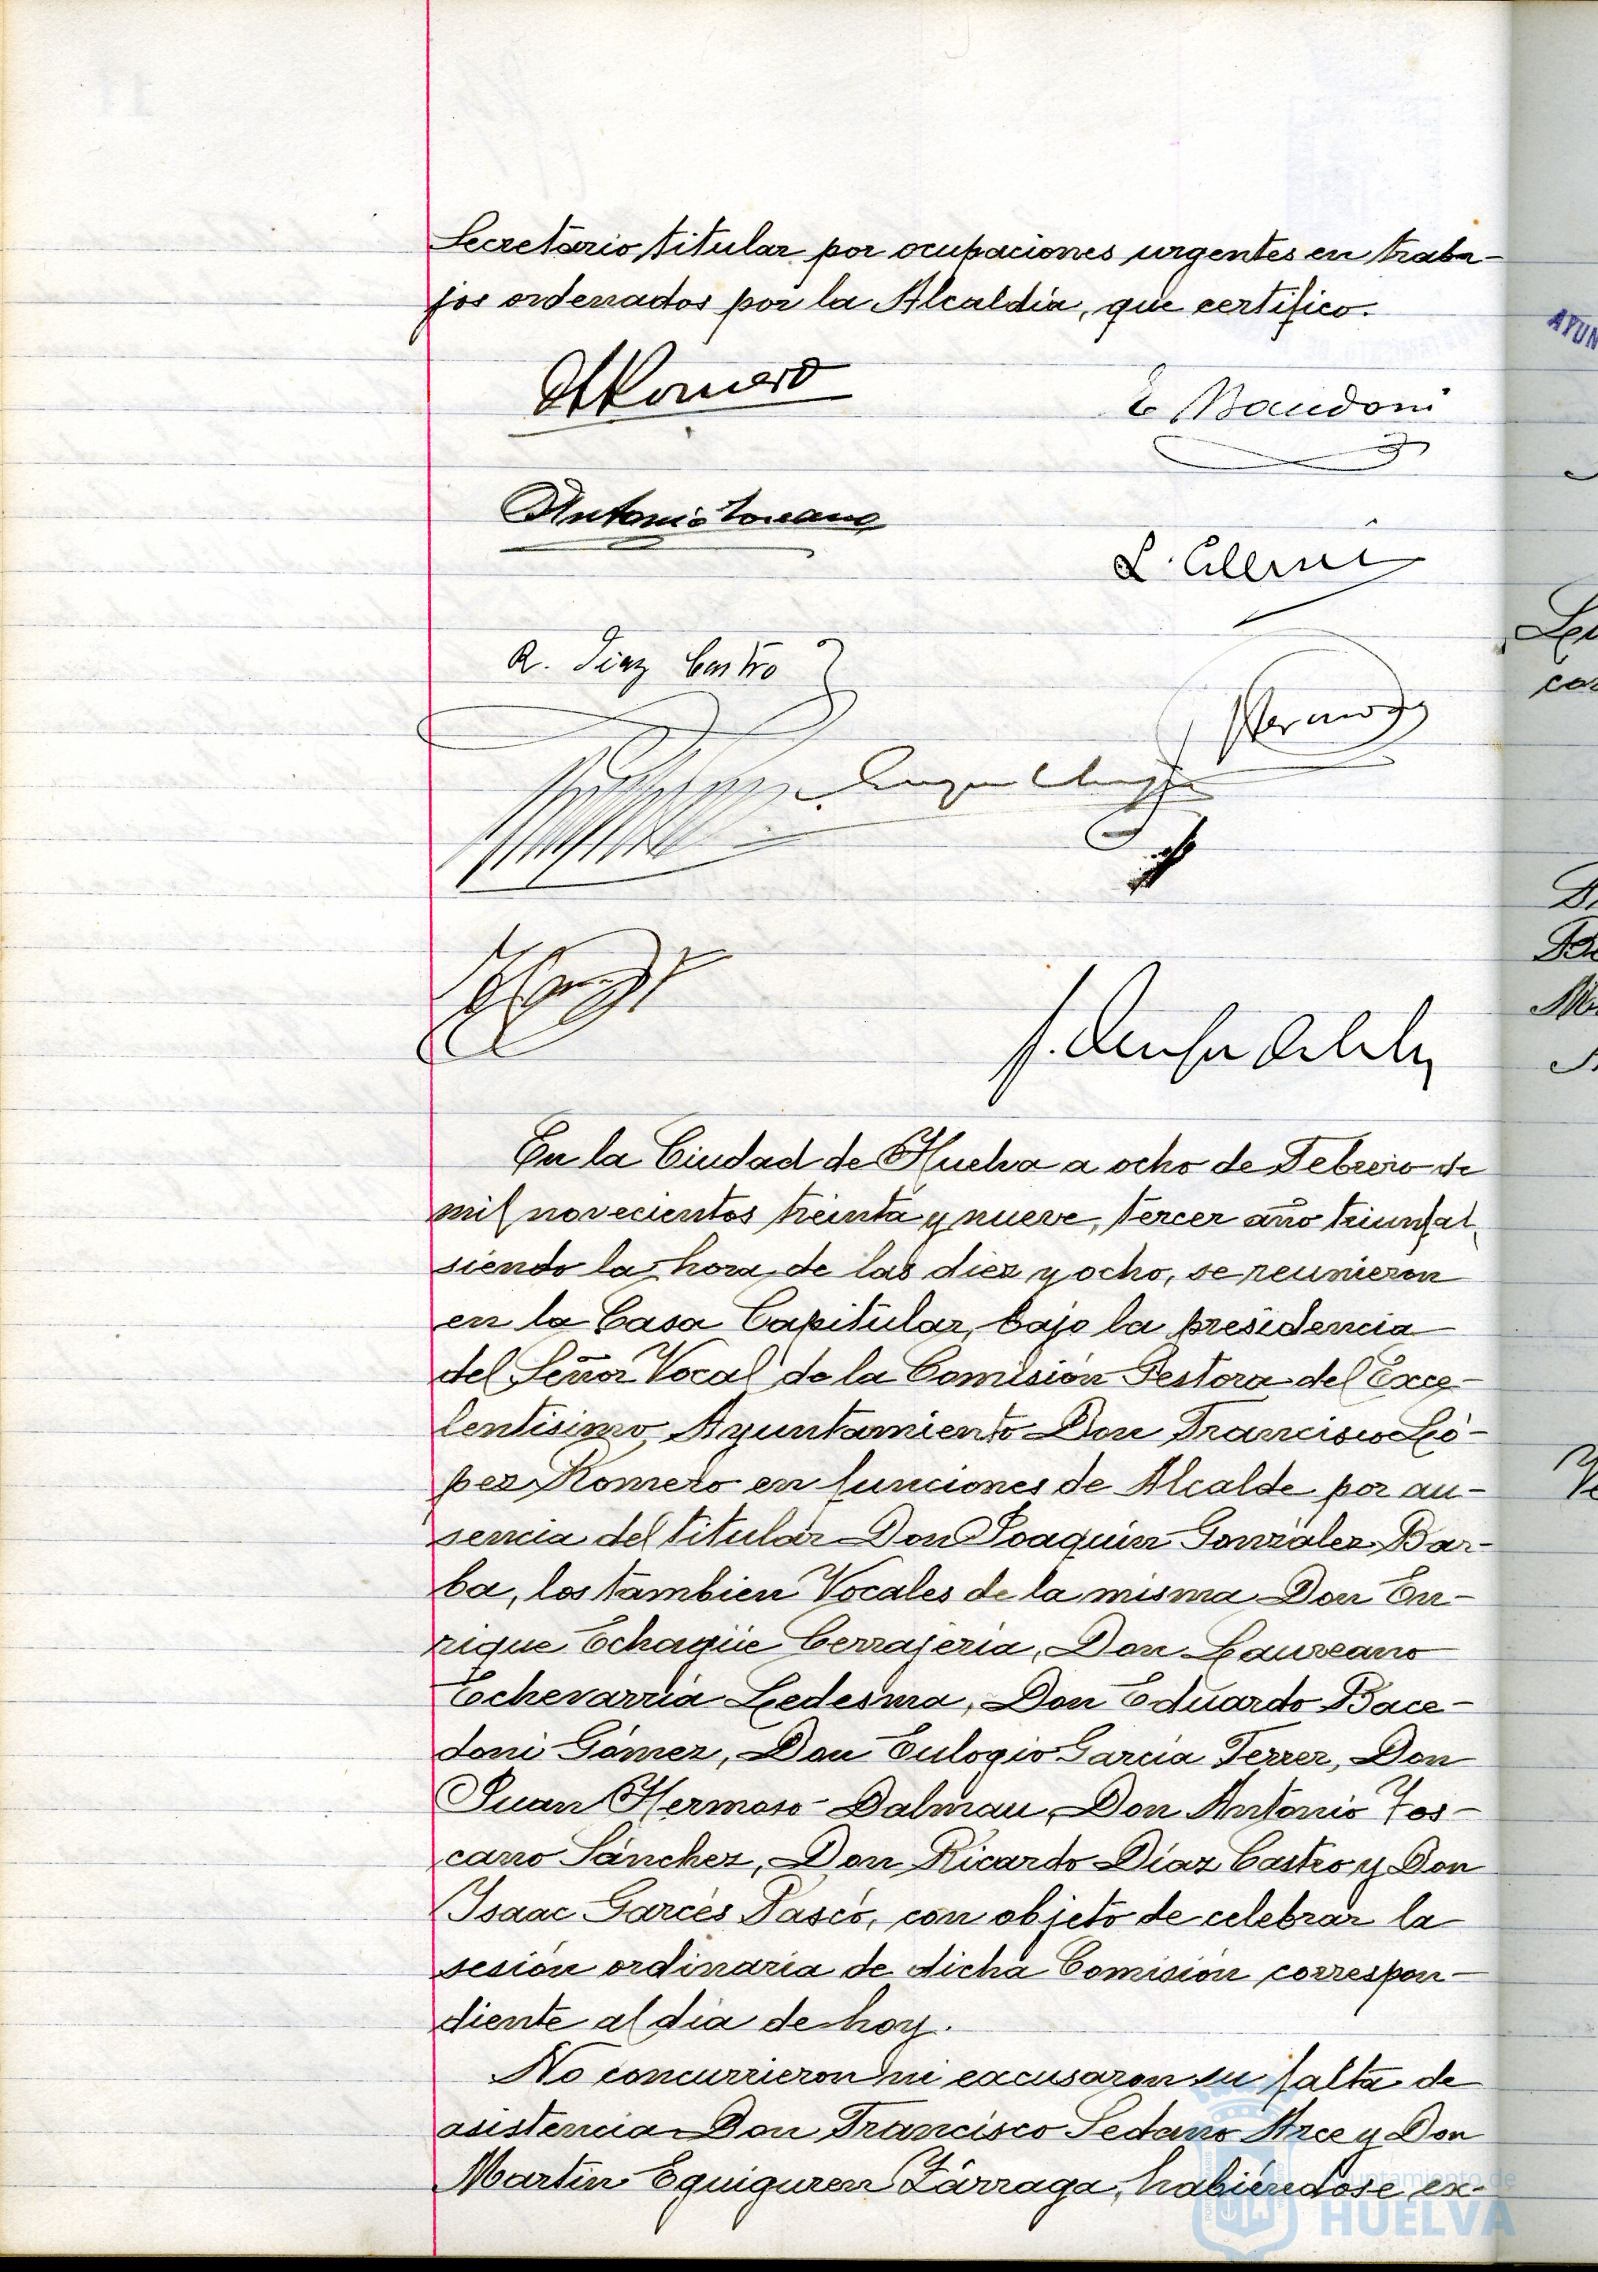 Secretario titular por ocupaciones urgentes en traba-
jos ordenados por la Alcaldía, que certifico.
Romero
E Bacedoni
Antonio Toscano
R. Díaz Castro
En la Ciudad de Huelva a ocho de Febrero de
mil novecientos treinta y nueve, tercer año triunfal,
siendo la hora de las diez y ocho, se reunieron
en la Casa Capitular, bajo la presidencia
del Señor Vocal de la Comisión Gestora del Exce-
lentísimo Ayuntamiento Don Francisco Ló-
pez Romero en funciones de Alcalde por au-
sencia del titular Don Joaquín González Bar-
ba, los tambien Vocales de la misma Don En-
rique Echagüe Cerrajería, Don Laureano
Echevarría Ledesma, Don Eduardo Bace-
doni Gómez, Don Eulogio García Ferrer, Don
Juan Hermoso Dalmau, Don Antonio Tos-
cano Sánchez, Don Ricardo Díaz Castro y Don
Isaac Garcés Pascó, con objeto de celebrar la
sesión ordinaria de dicha Comisión correspon-
diente al día de hoy.
No concurrieron ni excusaron su falta de
asistencia Don Francisco Sedano Arce y Don
Martín Eguiguren Zárraga, habiéndose ex-
Ayuntamiento de
HUELVA